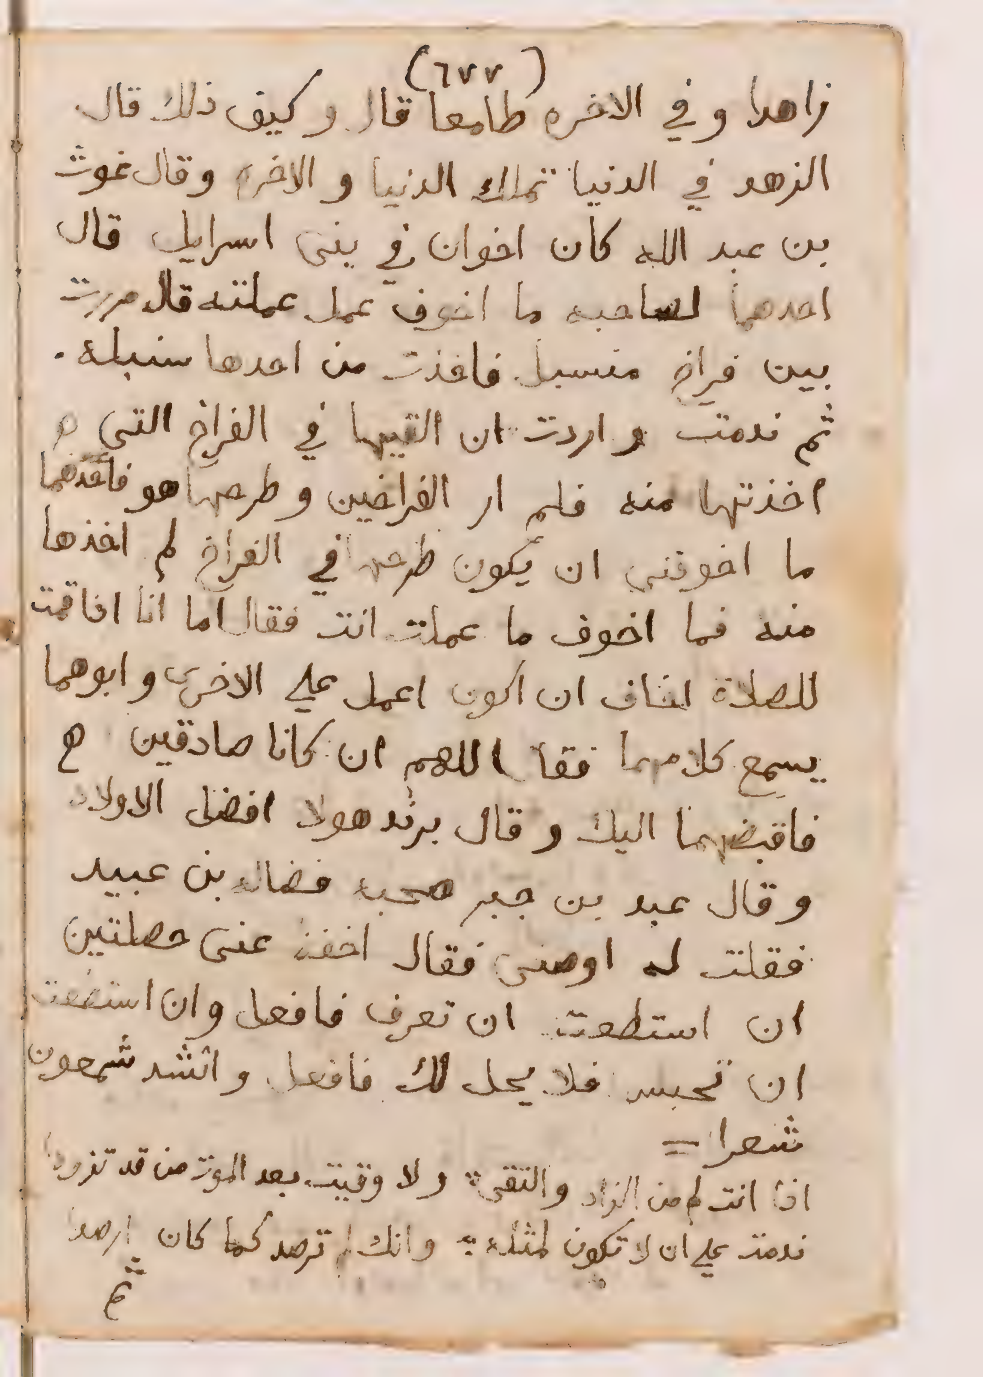 (٦٧٧)
زاهدا وفي الاخره طامعا قال وكيف ذلك قال
الزهد في الدنيا تملك الدنيا و الاخره وقال غوث
بن عبد الله كان اخوان في بني اسرايل قال
احدهما لصاحبه ما اخوف عمل عملته قال مررت
بين فراخ منسبل فاخذت من احدها سنبله .
ثم ندمت و اردت ان القيها في الفراخ التي
اخذتها منه فلم ار الفراخين وطرحها هو فاخذهما
ما اخوفني ان يكون طرحها في الفراخ لم اخذها
منه فما اخوف ما عملت انت فقال اما انا اذا قمت
للصلاة اخاف ان اكون اعمل علي الاخرى و ابوهما
يسمع كلامهما فقال اللهم ان كانا صادقين
فاقبضهما اليك وقال يزيد هولا افضل الاولاد
وقال عبد بن جبر صحبه فضاله بن عبيد
فقلت له اوصني فقال احفظ عني خصلتين
ان استطعت ان تعرف فافعل وان استطعت
ان تجلس فلا يحل لك فافعل و انشد شمعون
شعرا =
اذا انت لم من الزاد والتقى ولا وقيت بعد الموت من قد تزودا
ندمت علي ان لا تكون لمثله وانك لم ترصد كما كان ارصدا
ثم